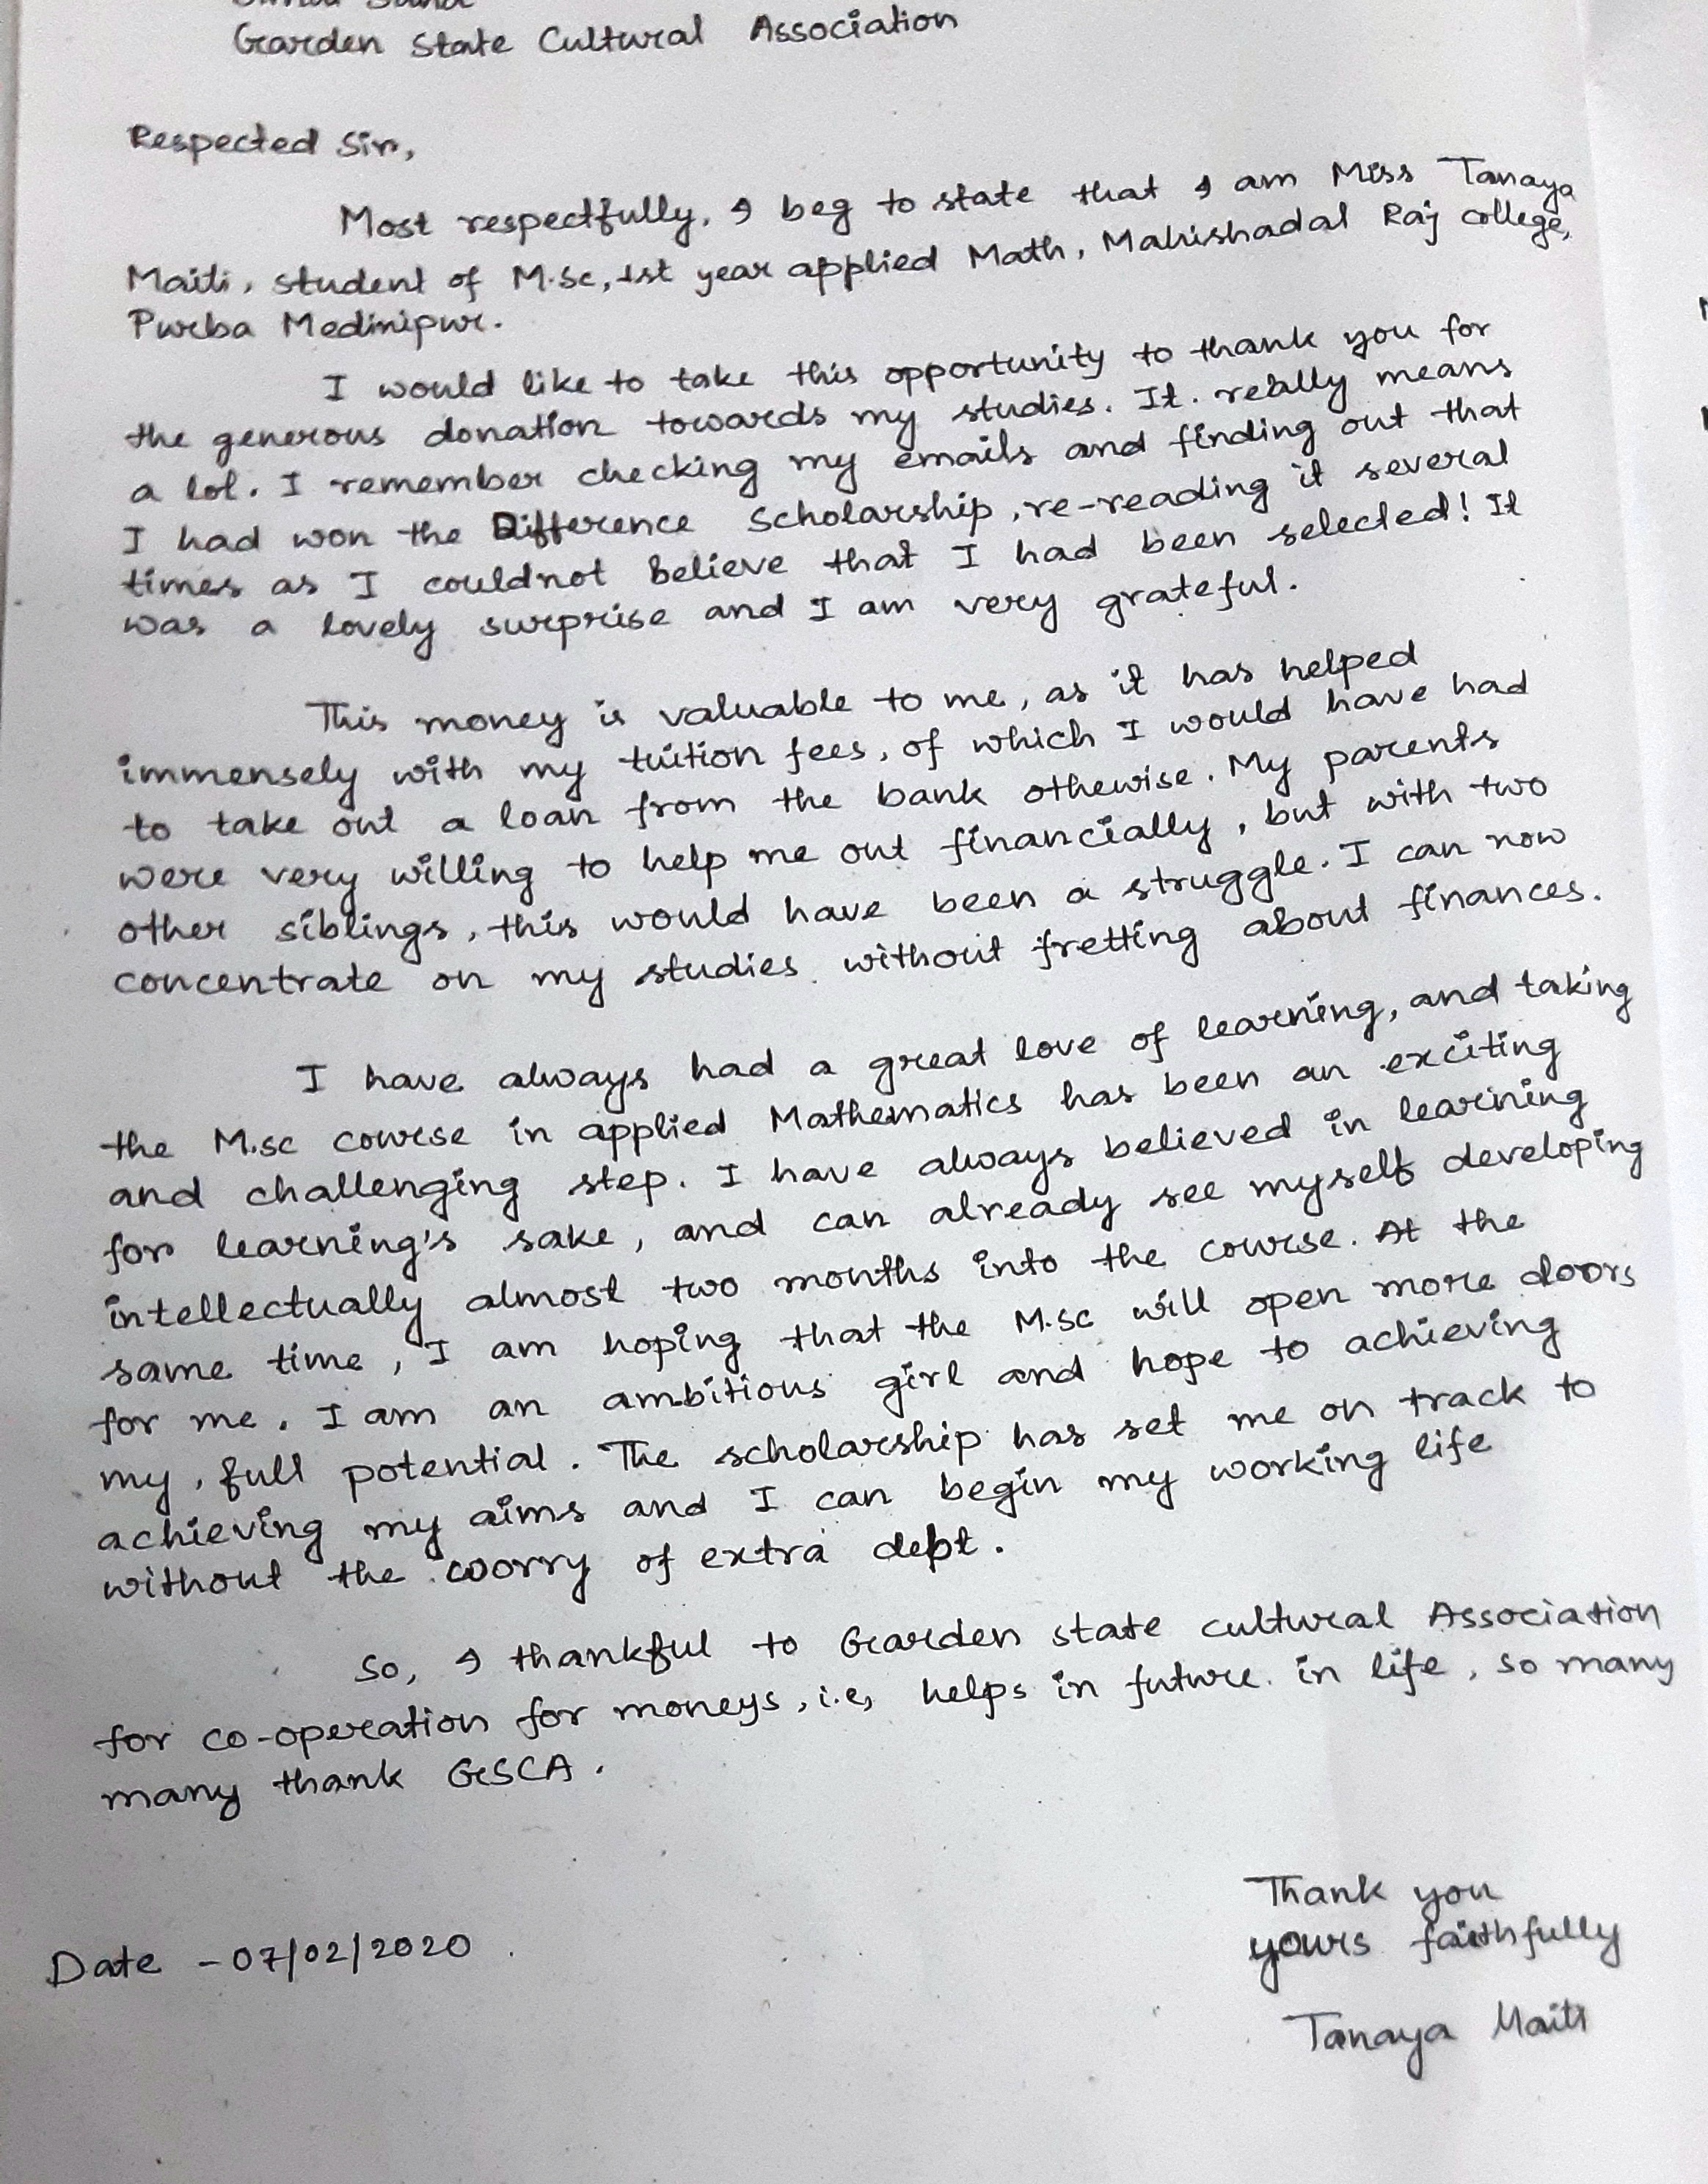 Garden State Cultural Association
Respected Sir,
Most respectfully, I beg to state that I am Miss Tanaya
Maiti, student of M.Sc, 1st year applied Math, Mahishadal Raj college,
Purba Medinipur.
I would like to take this opportunity to thank you for
the generous donation towards my studies. It. really means
a lot. I remember checking my emails and finding out that
I had won the Difference Scholarship, re-reading it several
times as I couldnot believe that I had been selected! It
was a lovely surprise and I am very grateful.
This money is valuable to me, as it has helped
immensely with my tuition fees, of which I would have had
to take out a loan from the bank othewise. My parents
were very willing to help me out financially, but with two
other siblings, this would have been a struggle. I can now
concentrate on my studies without fretting about finances.
I have always had a great love of learning, and taking
the M.sc course in applied Mathematics has been an exciting
and challenging step. I have always believed in learning
for learning's sake, and can already see myself developing
intellectually almost two months into the course. At the
same time, I am hoping that the M.sc will open more doors
for me. I am an ambitious girl and hope to achieving
my, full potential. The scholarship has set me on track to
achieving my aims and I can begin my working life
without the worry of extra debt.
So, I thankful to Garden state cultural Association
for co-operation for moneys, i.e, helps in future. in life, so many
many thank GSCA.
Thank you
yours faithfully
Date - 07/02/2020
Tanaya Maiti